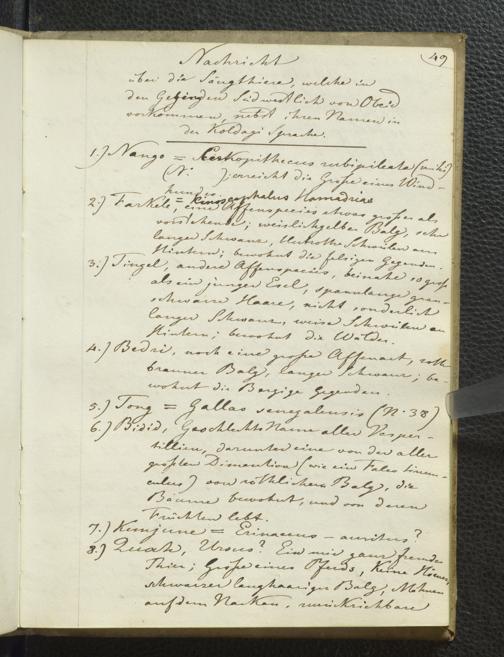 49
Nachricht
über die Säugthiere, welche in
den Gegenden Südwestlich von Obeid
vorkommen, nebst ihren Namen in
der Koldagi Sprache.
1.) Nango = Cerkopithecus rubipileata (mihi)
(N. ) ; erreicht die Große eines Wind-
hundes.
2.) Farkale, = Kinocephalus Hamadrias
eine Affenspecies etwas großer als
vorstehende; weislichgelber Balg, sehr
langer Schwanz, blutrothe Schwülen am
Hintern; bewohnt die felsigen Gegenden.
3.) Tingel, andere Affenspecies, beinahe so groß
als ein junger Esel, spannlange grau-
schwarze Haare, nicht sonderlich
langer Schwanz, weise Schwülen am
Hintern; bewohnt die Wälder.
4.) Bedri, noch eine große Affenart, roth-
brauner Balg, langer Schwanz; be-
wohnt die Bergige Gegenden.
5.) Tong = Gallas senegalensis (N. 38)
6.) Bidid, Geschlechts Name aller Vesper-
tillien, darunter eine von der aller
größten Dimention (wie ein Falco
) von röthlichem Balg, die
Bäume bewohnt, und von deren
Früchten lebt.
7.) Kunjune = Erinaceus – auritus?
8.) Quah, Ursus? Ein mir ganz fremdes
Thier; Große eines Pferds, keine Hörner,
schwarzer langhaariger Balg, Mähnen
auf dem Nacken, zurückrichbare